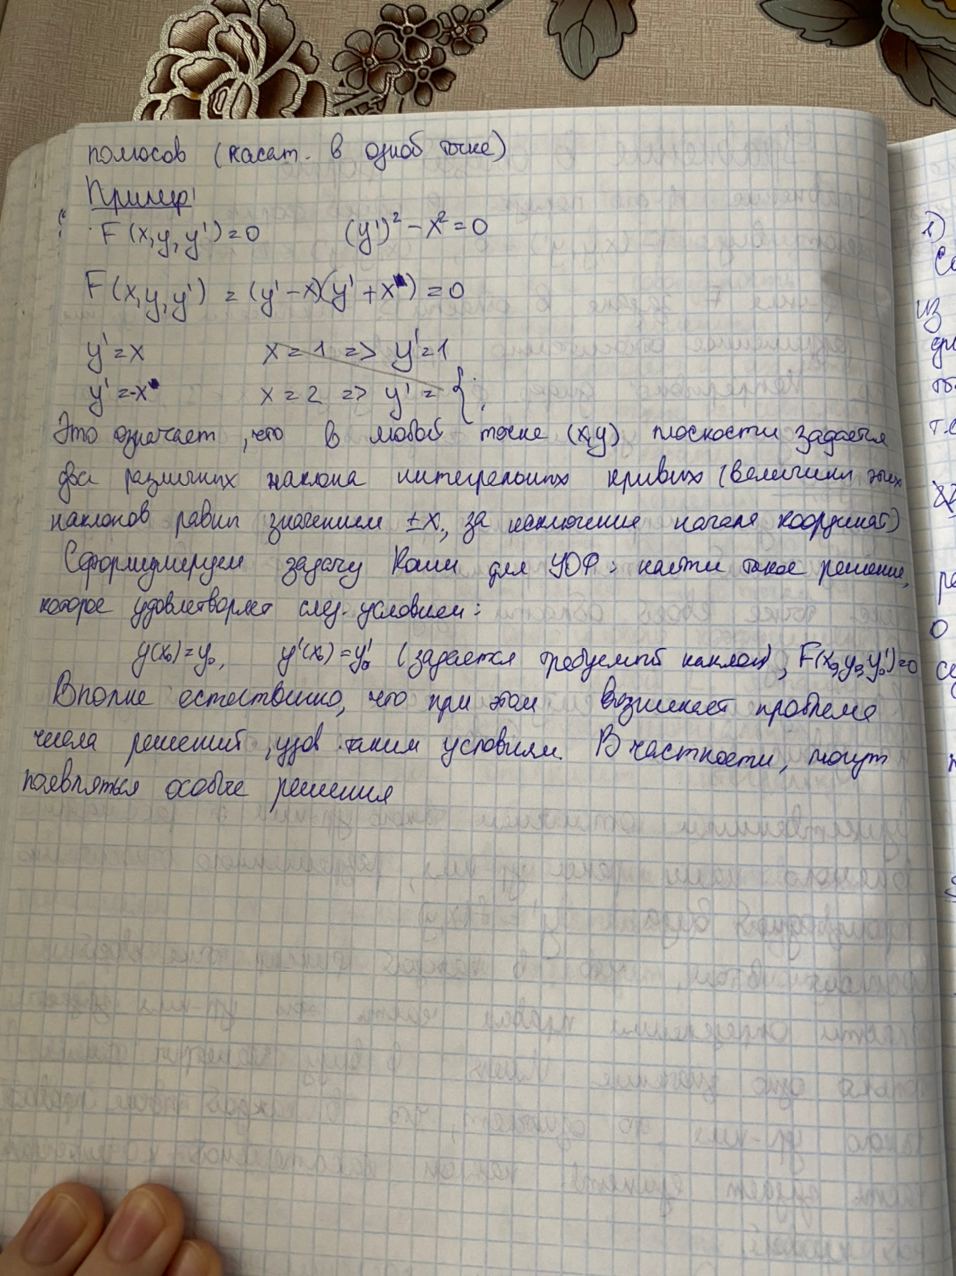 полюсов (касат. в одной точке)
Пример:
F(x,y,y')=0 (y')²-x²=0
F(x,y,y') = (y'-x)(y'+x)=0
y'=x x=1 => y'=1
y'=-x x=2 => y'={
Это означает, что в любой точке (x,y) плоскости задается
два различных наклона интегральных кривых (величины этих
наклонов равны значениям ±x, за исключение начала координат)
Сформулируем задачу Коши для УОФ: найти такое решение,
которое удовлетворяет след. условием:
y(x₀)=y₀, y'(x₀)=y'₀ (задается требуемый наклон), F(x₀,y₀,y₀')=0
Вполне естественно, что при этом возникает проблема
числа решений, удов. таким условиям. В частности, могут
появляться особые решения
1)
из
т.е
о